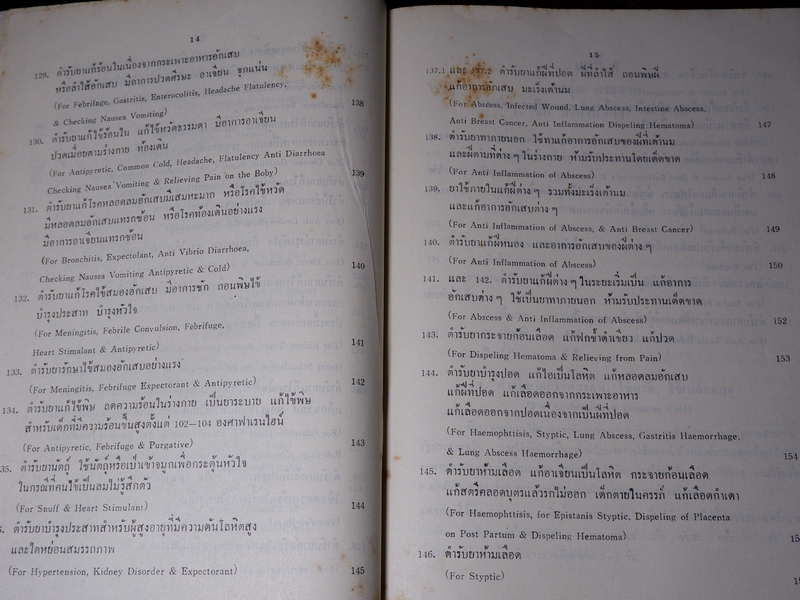 14
129. ตำรับยาแก้ร้อนในเนื่องจากกระเพาะอาหารอักเสบ
หรือลำไส้อักเสบ มีอาการปวดศีรษะ อาเจียน จุกแน่น
(For Febrifuge, Gastritis, Enterocolitis, Headache Flatulency,
& Checking Nausea Vomiting) 138
130. ตำรับยาแก้ไข้ร้อนใน แก้ไข้หวัดธรรมดา มีอาการอาเจียน
ปวดเมื่อยตามร่างกาย ท้องเดิน
(For Antipyretic, Common Cold, Headache, Flatulency Anti Diarrhoea
Checking Nausea Vomiting & Relieving Pain on the Boby) 139
131. ตำรับยาแก้โรคหลอดลมอักเสบมีเสมหะมาก หรือโรคไข้หวัด
มีหลอดลมอักเสบแทรกซ้อน หรือโรคท้องเดินอย่างแรง
มีอาการอาเจียนแทรกซ้อน
(For Bronchitis, Expectolant, Anti Vibrio Diarrhoea,
Checking Nausea Vomiting Antipyretic & Cold) 140
132. ตำรับยาแก้โรคไข้สมองอักเสบ มีอาการชัก ถอนพิษไข้
บำรุงประสาท บำรุงหัวใจ
(For Meningitis, Febrile Convulsion, Febrifuge,
Heart Stimalant & Antipyretic) 141
133. ตำรับยารักษาไข้สมองอักเสบอย่างแรง
(For Meningitis, Febrifuge Expectorant & Antipyretic) 142
134. ตำรับยาแก้ไข้พิษ ลดความร้อนในร่างกาย เป็นยาระบาย แก้ไข้พิษ
สำหรับเด็กที่มีความร้อนขึ้นสูงตั้งแต่ 102–104 องศาฟาเรนไฮน์
(For Antipyretic, Febrifuge & Purgative) 143
35. ตำรับยานัตถุ์ ใช้นัตถุ์หรือเป่าเข้าจมูกเพื่อกระตุ้นหัวใจ
ในกรณีที่คนไข้เป็นลมไม่รู้สึกตัว
(For Snuff & Heart Stimulant) 144
. ตำรับยาบำรุงประสาทสำหรับผู้สูงอายุที่มีความดันโลหิตสูง
และไตหย่อนสมรรถภาพ
(For Hypertension, Kidney Disorder & Expectorant) 145
15
137.1 และ 137.2 ตำรับยาแก้ฝีที่ปอด ฝีที่ลำไส้ ถอนพิษฝี
แก้อาการอักเสบ มะเร็งเต้านม
(For Abscess, Infected Wound, Lung Abscess, Intestine Abscess,
Anti Breast Cancer, Anti Inflammation Dispeling Hematoma) 147
138. ตำรับยาทาภายนอก ใช้ทาแก้อาการอักเสบของฝีที่เต้านม
และฝีตามที่ต่าง ๆ ในร่างกาย ห้ามรับประทานโดยเด็ดขาด
(For Anti Inflammation of Abscess) 148
139. ยาใช้ภายในแก้ฝีต่าง ๆ รวมทั้งมะเร็งเต้านม
และแก้อาการอักเสบต่าง ๆ
(For Anti Inflammation of Abscess, & Anti Breast Cancer) 149
140. ตำรับยาแก้ฝีหนอง และอาการอักเสบของฝีต่าง ๆ
(For Anti Inflammation of Abscess) 150
141. และ 142. ตำรับยาแก้ฝีต่าง ๆ ในระยะเริ่มเป็น แก้อาการ
อักเสบต่าง ๆ ใช้เป็นยาทาภายนอก ห้ามรับประทานเด็ดขาด
(For Abscess & Anti Inflammation of Abscess) 152
143. ตำรับยากระจายก้อนเลือด แก้ฟกช้ำดำเขียว แก้ปวด
(For Dispeling Hematoma & Relieving from Pain) 153
144. ตำรับยาบำรุงปอด แก้ไอเป็นโลหิต แก้หลอดลมอักเสบ
แก้ฝีที่ปอด แก้เลือดออกจากกระเพาะอาหาร
แก้เลือดออกจากปอดเนื่องจากเป็นฝีที่ปอด
(For Haemophttisis, Styptic, Lung Abscess, Gastritis Haemorrhage,
& Lung Abscess Haemorrhage) 154
145. ตำรับยาห้ามเลือด แก้อาเจียนเป็นโลหิต กระจายก้อนเลือด
แก้สตรีคลอดบุตรแล้วรกไม่ออก เด็กตายในครรภ์ แก้เลือดกำเดา
(For Haemophthisis, for Epistanis Styptic, Dispeling of Placenta
on Post Partum & Dispeling Hematoma) 15
146. ตำรับยาห้ามเลือด
(For Styptic) 1